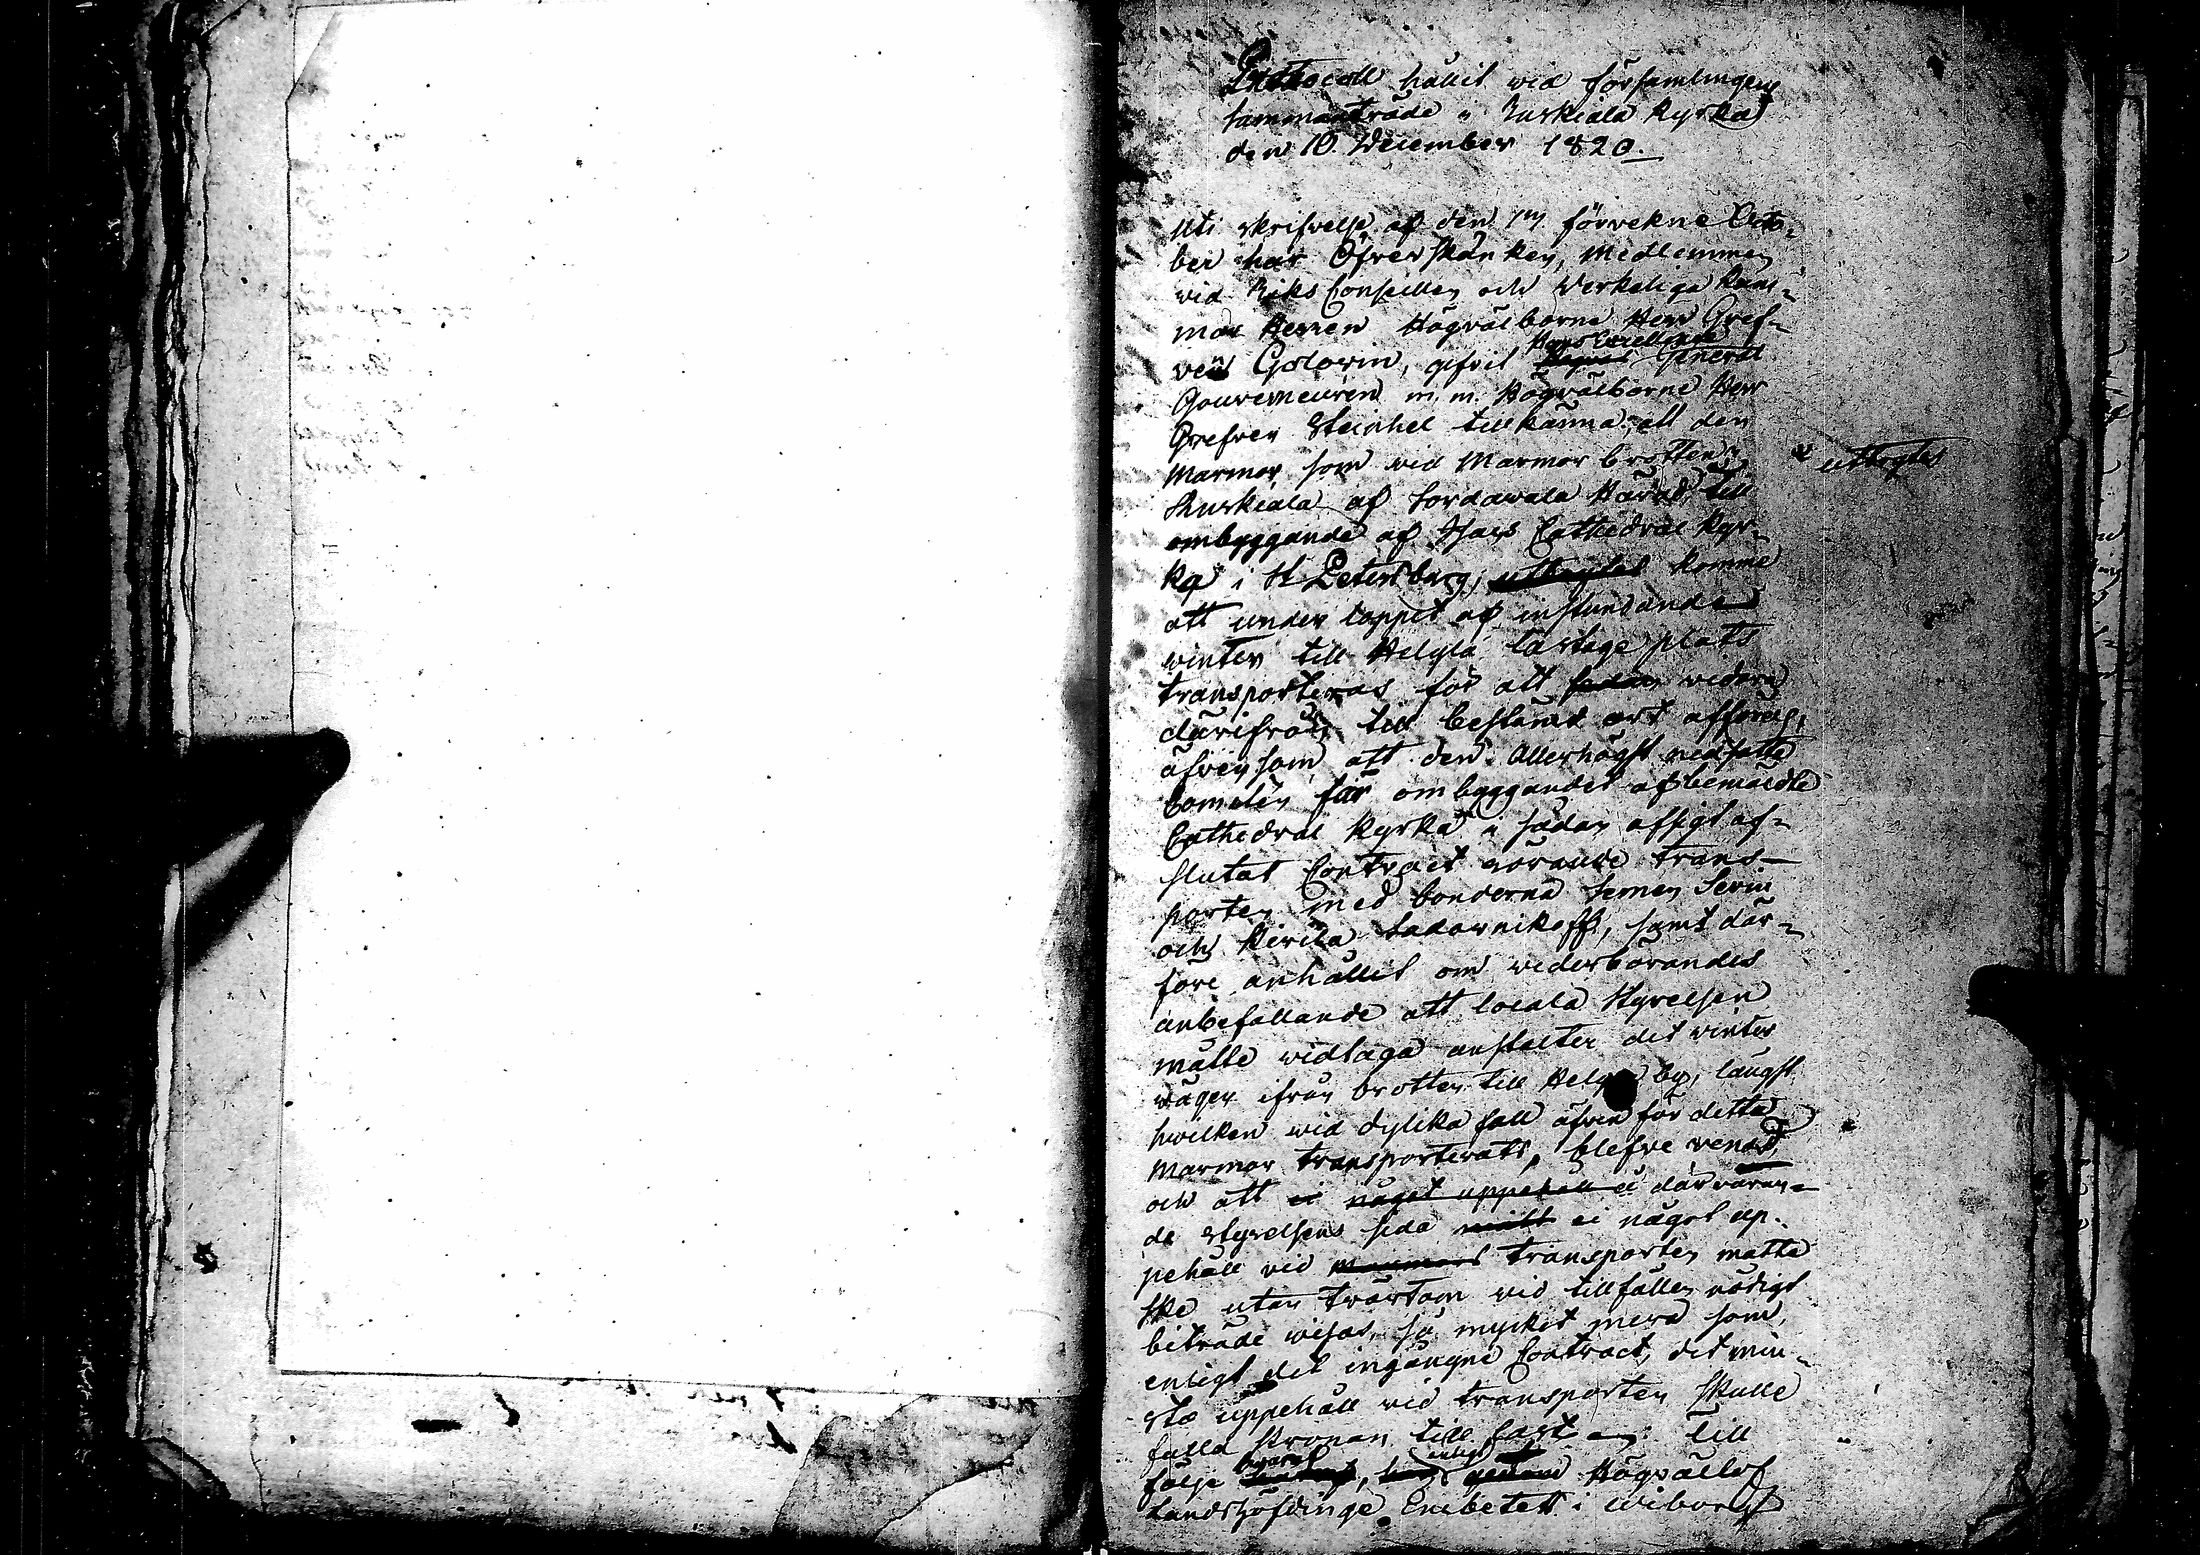 Protocoll hållit wid församlingens
sammanträde i Ruskiala Kyrka
den 10. December 1820.
Uti skrifvelse af den förvekne Octo-
ber har Öfverskänken, Medlemmen
vid Riks Conseillen och Verkeliga Kam-
mar Herren Högvälborne Herr Gref-
ven Golowin, gifvit Hans Excellence General
Gouverneuren m. m. Högvälborne Herr
Grefven Steinheil tillkänna, att den
Marmor, som vid Marmor brotten i
uttagtes
Ruskiala af Sordawala Härad, till
ombyggande af Isacs Cathedral Kyr-
ka i St Petersburg, uttagtes komme
att under loppet af instundande
winter till Helylä lastage plats
transporteras för att sedan vidare
därifrån till bestämt ort afföras,
äfvensom att den Allerhögst nedsatte
Comitén för ombyggandet af bemäldte
Cathedral Kyrka i sådan afsigt af-
slutat Contract rörande trans-
porten med bönderna Semen Serin
och Kirila Sadownikoff, samt där-
före anhållit om wederbörandes
anbefallande att locala Styrelsen
måtte widtaga anstalter det winter
vägen ifrån brotten till Helylä by, längst
hwilken wid dylika fall äfven för detta
Marmor transporterats, blefve renad,
och att ei något uppehåll å därvaran-
de styrelsens sida mått ei något up-
pehåll vid Marmors transporten måtte
ske utan tvärtom vid tillfällen nödigt
biträde visas, så mycket mera som,
enligt det ingångne Contract, det min-
sta uppehåll vid transporten skulle
falla Kronan till last. Till
följe häraf, enligt Högvällof
Landshöfdinge Embetet i Wiborgs